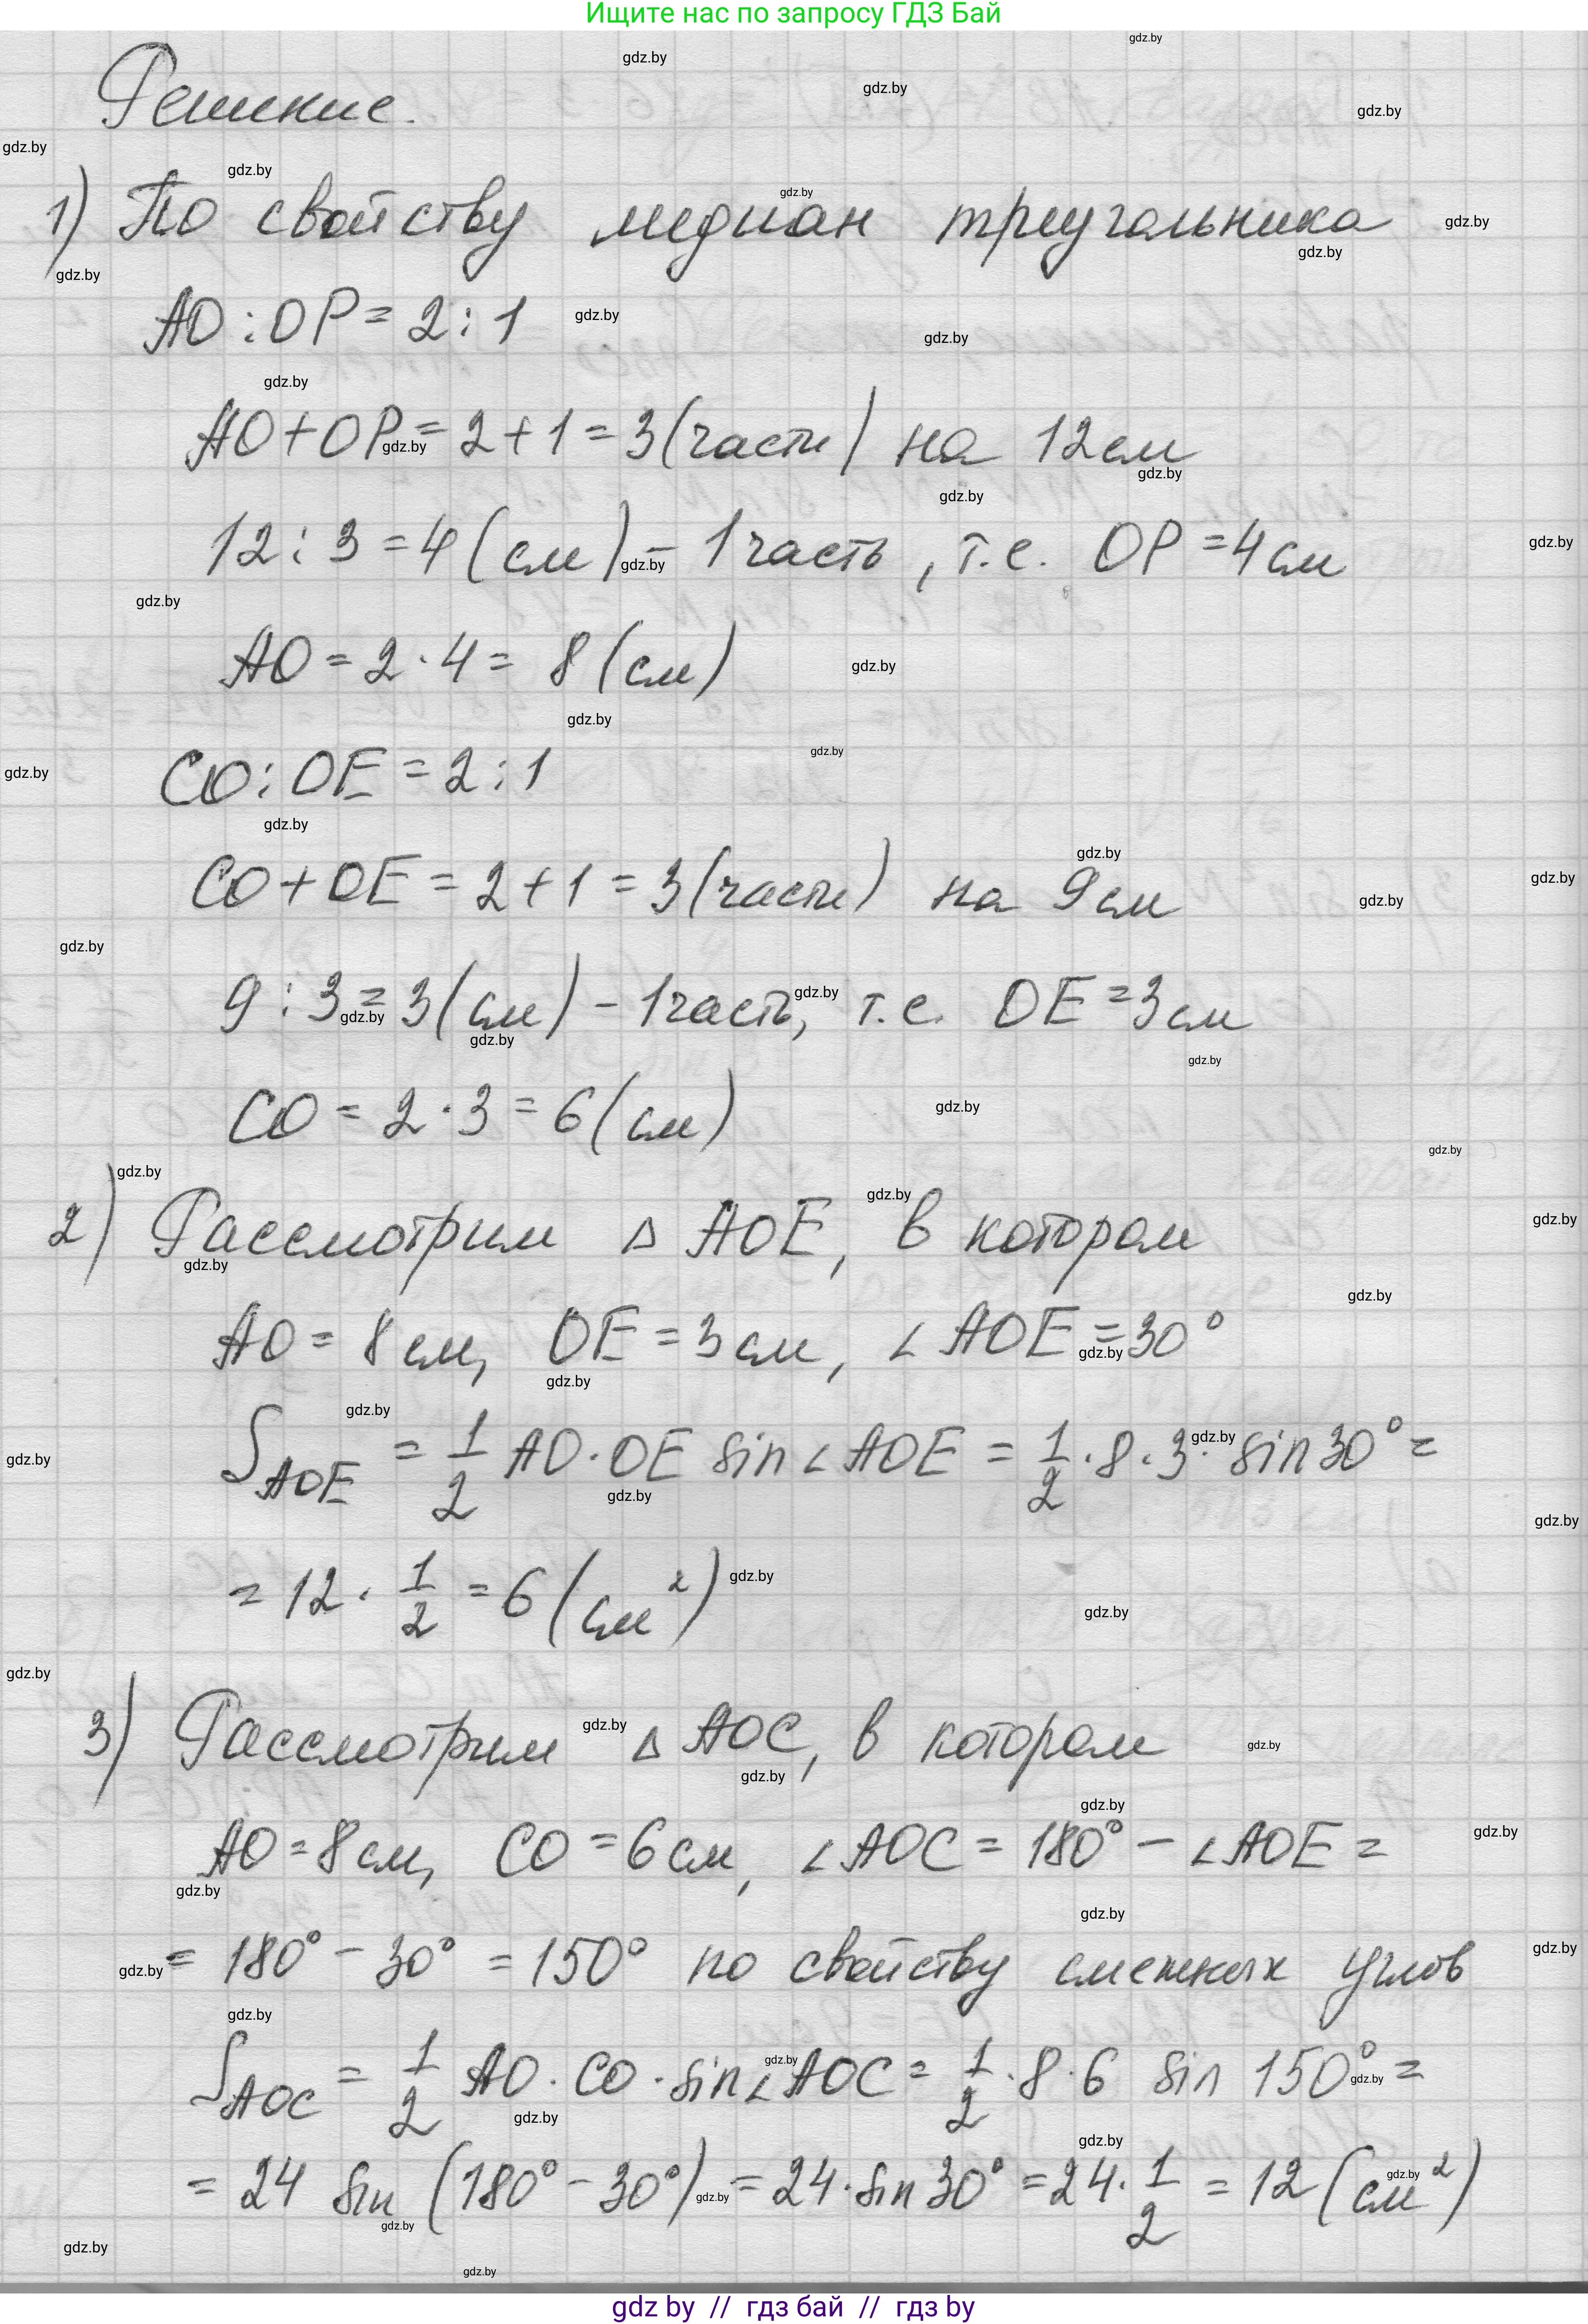 Ищите нас по запросу ГДЗ Бай
Решение.
1) По свойству медиан треугольника
AO : OP = 2 : 1
AO + OP = 2 + 1 = 3 (части) на 12 см
12 : 3 = 4 (см) – 1 часть, т.е. OP = 4 см
AO = 2 · 4 = 8 (см)
CO : OE = 2 : 1
CO + OE = 2 + 1 = 3 (части) на 9 см
9 : 3 = 3 (см) – 1 часть, т.е. OE = 3 см
CO = 2 · 3 = 6 (см)
2) Рассмотрим △ AOE, в котором
AO = 8 см, OE = 3 см, ∠ AOE = 30°
S_AOE = 1/2 AO · OE sin ∠ AOE = 1/2 · 8 · 3 · sin 30° =
= 12 · 1/2 = 6 (см²)
3) Рассмотрим △ AOC, в котором
AO = 8 см, CO = 6 см, ∠ AOC = 180° – ∠ AOE =
= 180° – 30° = 150° по свойству смежных углов
S_AOC = 1/2 AO · CO · sin ∠ AOC = 1/2 · 8 · 6 sin 150° =
= 24 sin (180° – 30°) = 24 · sin 30° = 24 · 1/2 = 12 (см²)
gdz by // гдз бай // гдз by